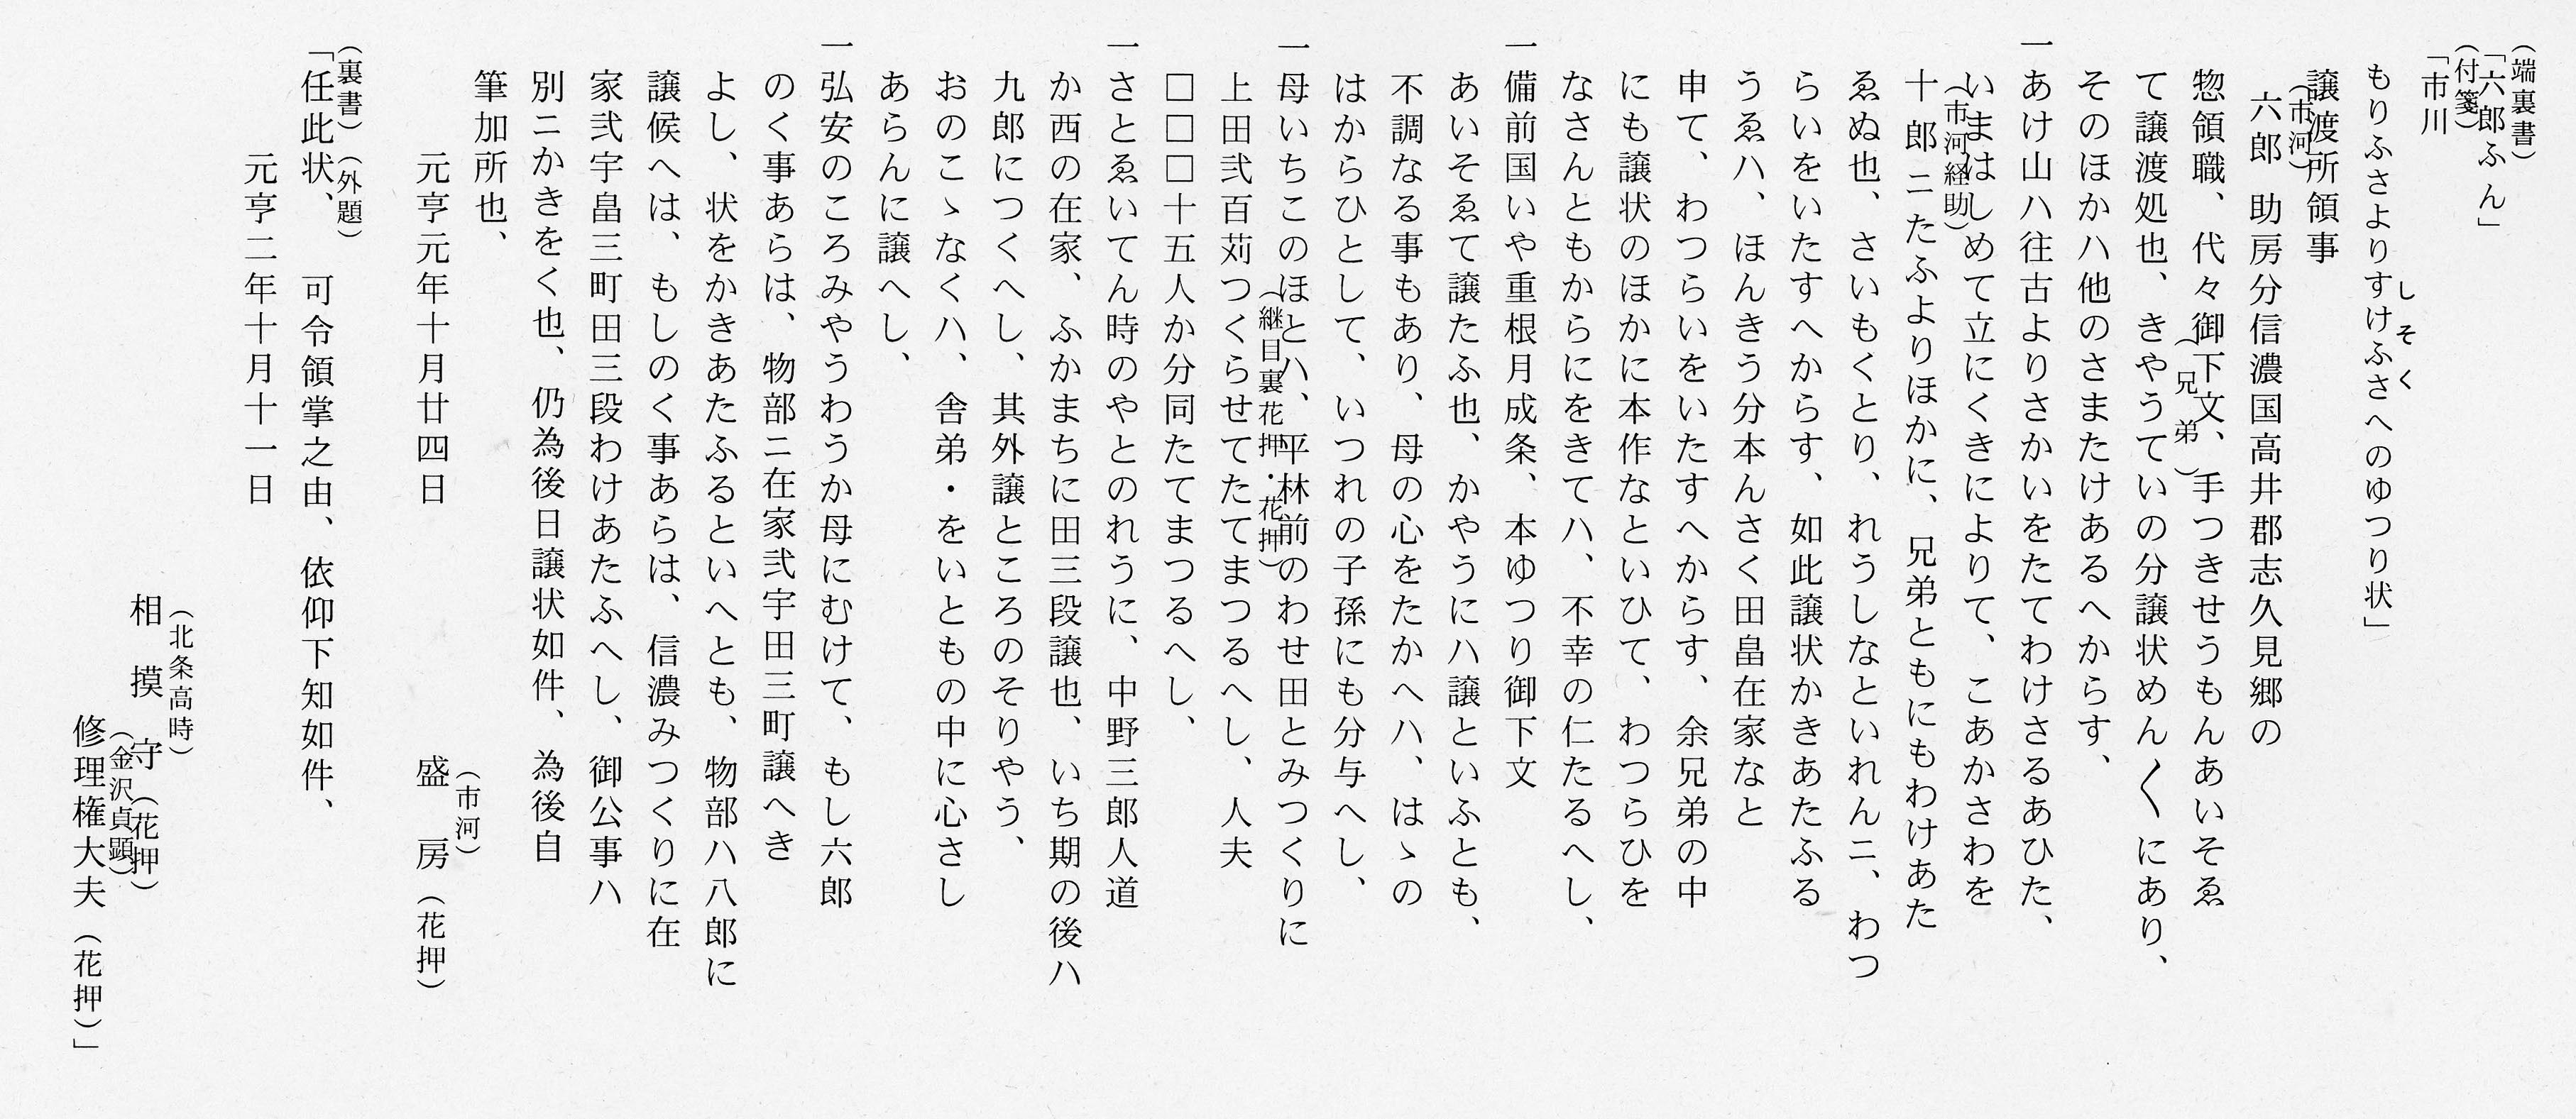 （端裏書）
「六郎ふん」
（付箋）
「市川
しそく
もりふさよりすけふさへのゆつり状」
譲渡所領事
（市河）
六郎　助房分信濃国高井郡志久見郷の
惣領職、代々御下文、手つきせうもんあいそゑ
（兄弟）
て譲渡処也、きやうていの分譲状めん〳〵にあり、
そのほかハ他のさまたけあるへからす、
一あけ山ハ往古よりさかいをたてわけさるあひた、
いまはしめて立にくきによりて、こあかさわを
（市河経助）
十郎ニたふよりほかに、兄弟ともにもわけあた
ゑぬ也、さいもくとり、れうしなといれんニ、わつ
らいをいたすへからす、如此譲状かきあたふる
うゑハ、ほんきう分本んさく田畠在家なと
申て、わつらいをいたすへからす、余兄弟の中
にも譲状のほかに本作なといひて、わつらひを
なさんともからにをきてハ、不幸の仁たるへし、
一備前国いや重根月成条、本ゆつり御下文
あいそゑて譲たふ也、かやうにハ譲といふとも、
不調なる事もあり、母の心をたかへハ、はゝの
はからひとして、いつれの子孫にも分与へし、
一母いちこのほとハ、平林前のわせ田とみつくりに
（継目裏花押・花押）
上田弐百苅つくらせてたてまつるへし、人夫
□□□十五人か分同たてまつるへし、
一さとゑいてん時のやとのれうに、中野三郎人道
か西の在家、ふかまちに田三段譲也、いち期の後ハ
九郎につくへし、其外譲ところのそりやう、
おのこゝなくハ、舎弟・をいともの中に心さし
あらんに譲へし、
一弘安のころみやうわうか母にむけて、もし六郎
のく事あらは、物部ニ在家弐宇田三町譲へき
よし、状をかきあたふるといへとも、物部ハ八郎に
譲候へは、もしのく事あらは、信濃みつくりに在
家弐宇畠三町田三段わけあたふへし、御公事ハ
別ニかきをく也、仍為後日譲状如件、為後自
筆加所也、
元亨元年十月廿四日
（市河）
盛　房（花押）
（裏書）（外題）
「任此状、　可令領掌之由、依仰下知如件、
元亨二年十月十一日
（北条高時）
相　摸　守（花押）
（金沢貞顕）
修理権大夫（花押）」